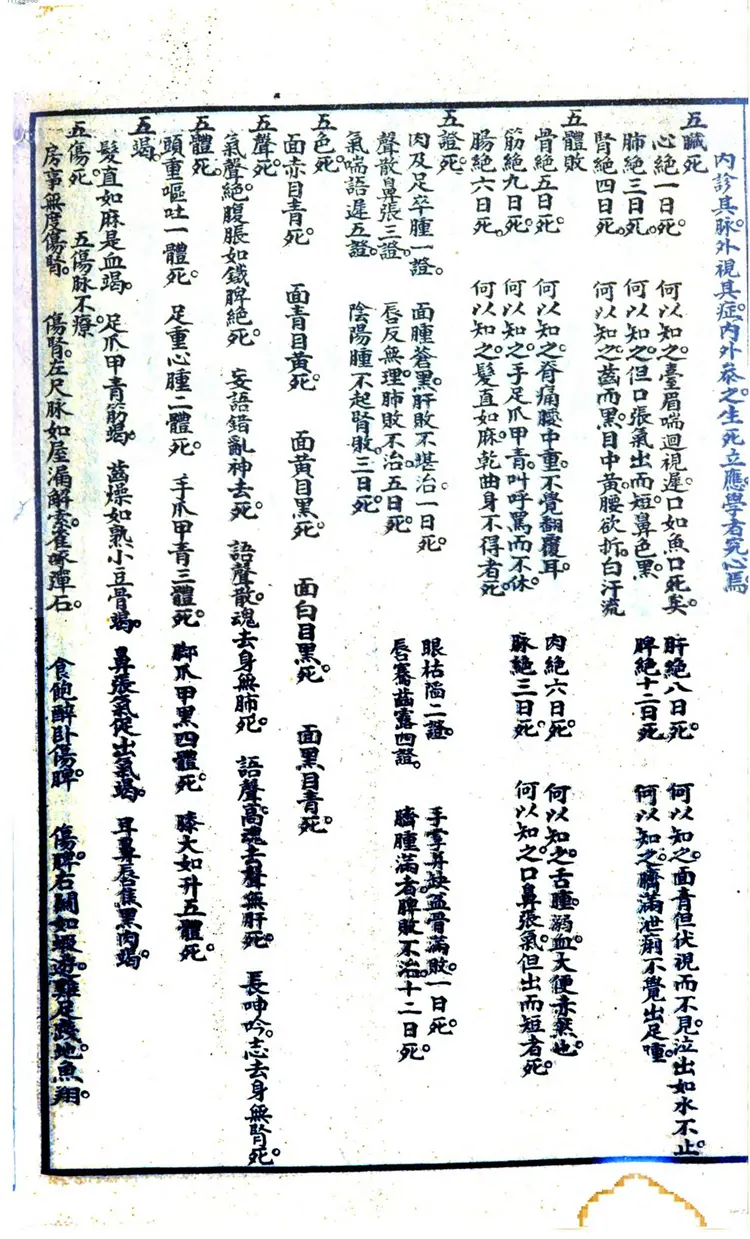 內診其脉外視其症內外叅之生死立應學者究心焉
五臟死
心絕一日死 何以知之臺眉喘迴視遲口如魚口死矣 肝絕八日死 何以知之面青但伏視而不見泣出如水不止
肺絕三日死 何以知之但口張氣出而短鼻色黑 脾絕十二日死 何以知之臍滿泄痢不覺出足腫
腎絕四日死 何以知之齒而黑目中黃腰欲折白汗流
五體敗
骨絕五日死 何以知之脊痛腰中重不覺翻覆耳 肉絕六日死 何以知之舌腫溺血大便赤無也
筋絕九日死 何以知之手足爪甲青叫呼罵而不休 脉絕三日死 何以知之口鼻張氣但出而短者死
腸絕六日死 何以知之髮直如麻乾曲身不得者死
五證死
肉及足卒腫一證 面腫蒼黑肝敗不堪治一日死 眼枯陷二證 手掌并缺盆骨滿敗一日死
聲散鼻張三證 唇反無理肺敗不治五日死 唇騫齒露四證 臍腫滿者脾敗不治十二日死
氣喘語遲五證 陰陽腫不起腎敗三日死
五色死
面赤目青死 面青目黃死 面黃目黑死 面白目黑死 面黑目青死
五聲死
氣聲絕腹脹如鐵脾絕死 妄語錯亂神去死 語聲散魂去身無肺死 語聲高魂去聲無肝死 長呻吟志去身無腎死
五體死
頭重嘔吐一體死 足重心腫二體死 手爪甲青三體死 脚爪甲黑四體死 膝大如升五體死
五竭
髮直如麻是血竭 足爪甲青筋竭 齒燥如熟小豆骨竭 鼻張氣促出氣竭 耳鼻唇焦黑肉竭
五傷死 五傷脉不療
房事無度傷腎 傷腎左尺脉如屋漏解索雀啄彈石 食飽醉卧傷脾 傷脾右關如蝦遊雞足踐地魚翔